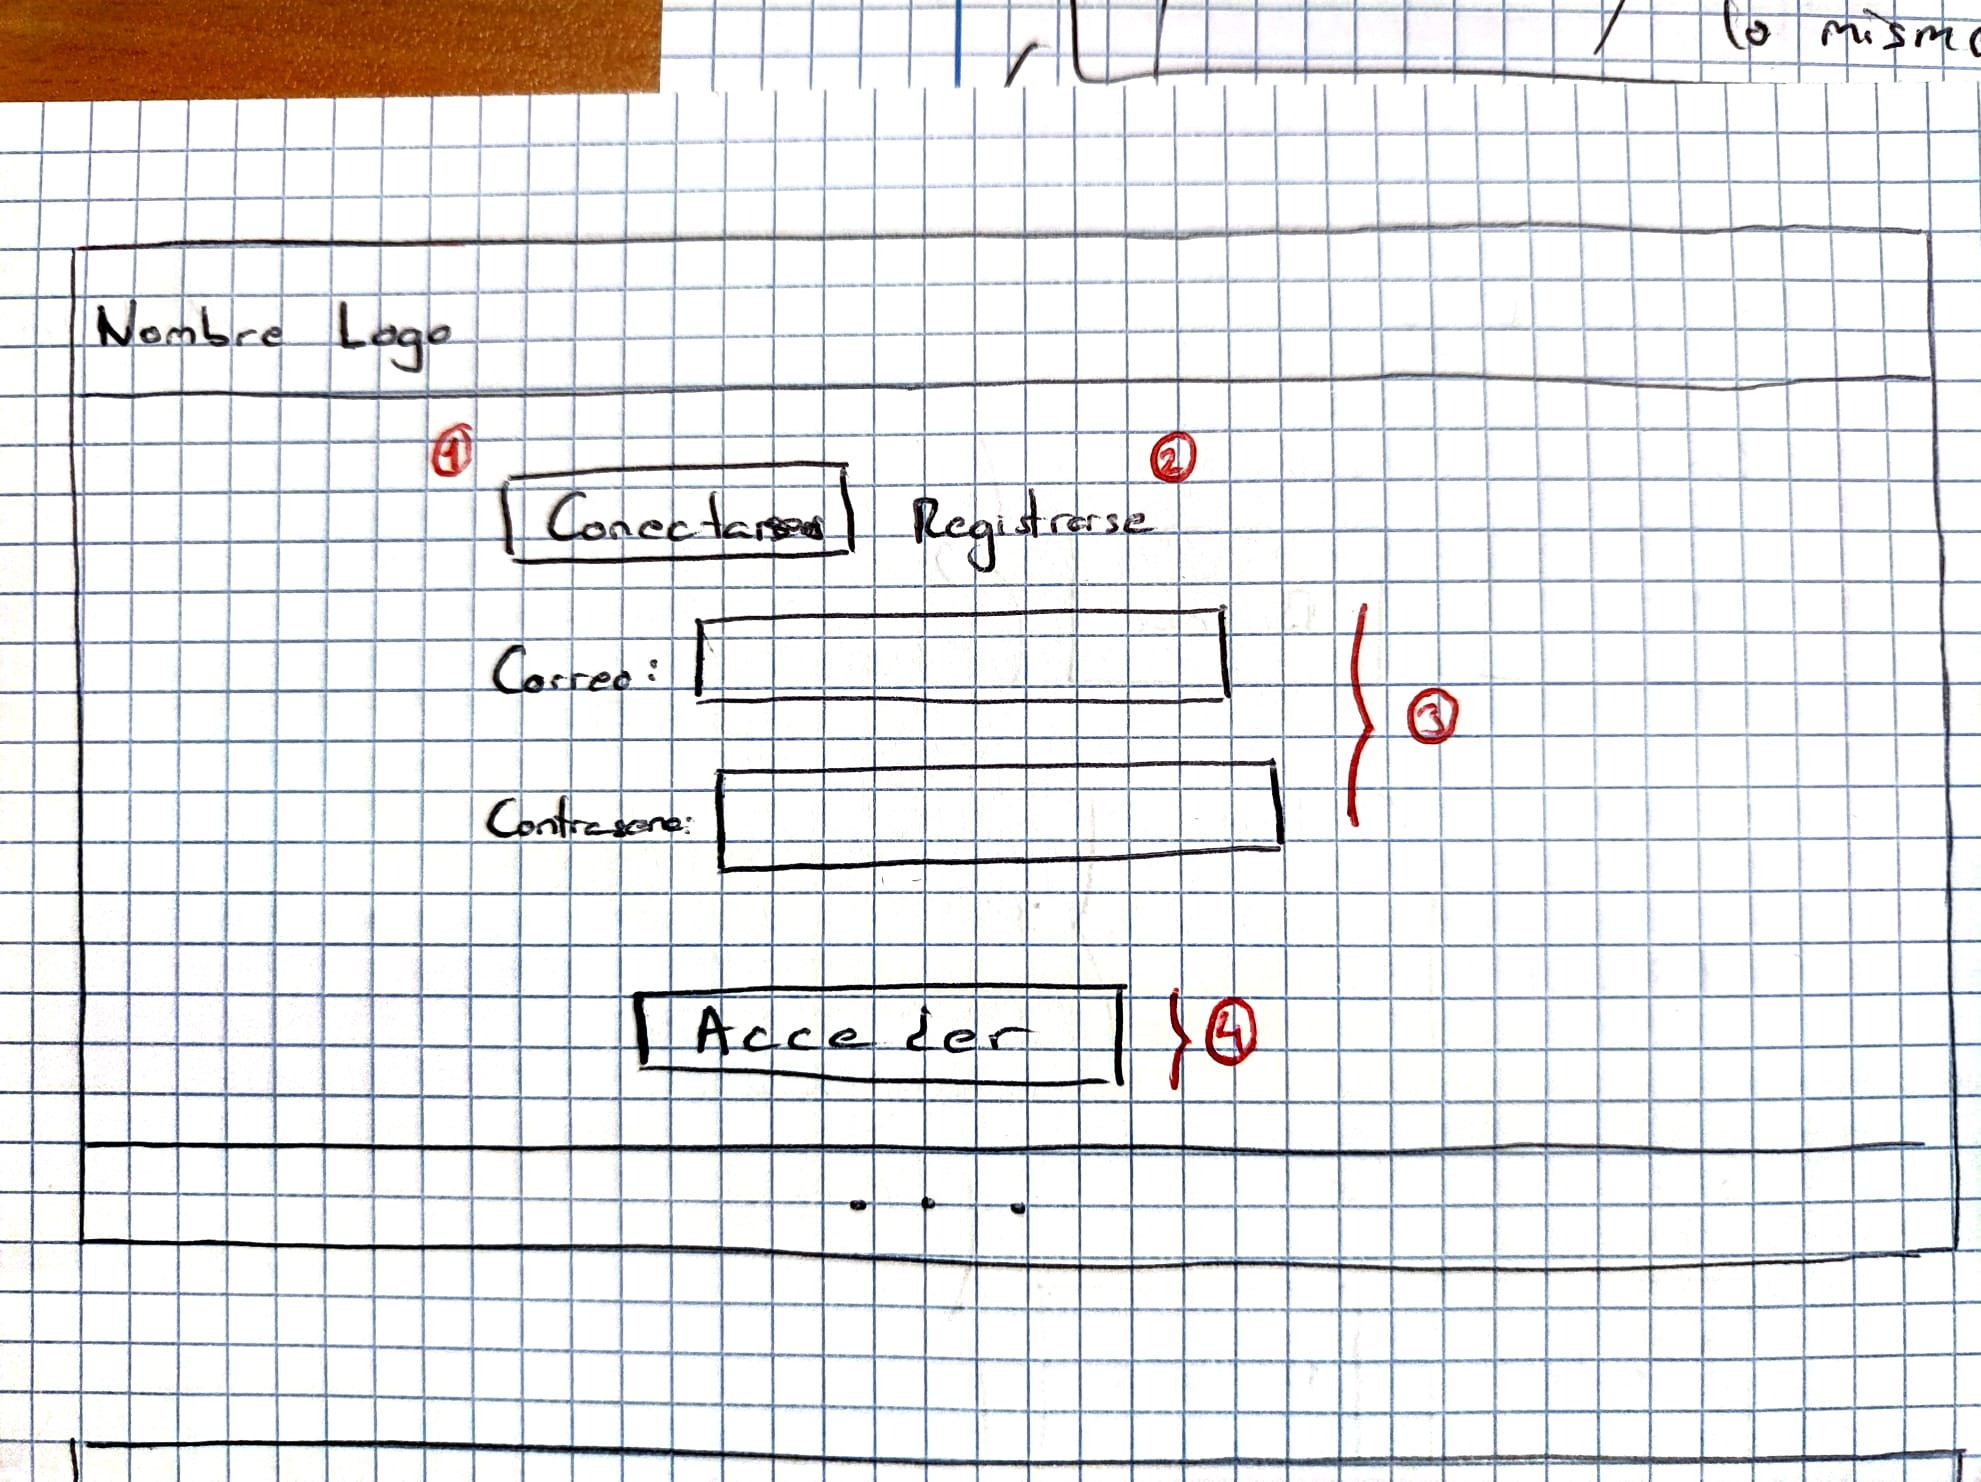 lo mismo
Nombre Logo
1 2
Conectarse Registrarse
Correo:
3
Contrasena:
Acceder 4
...